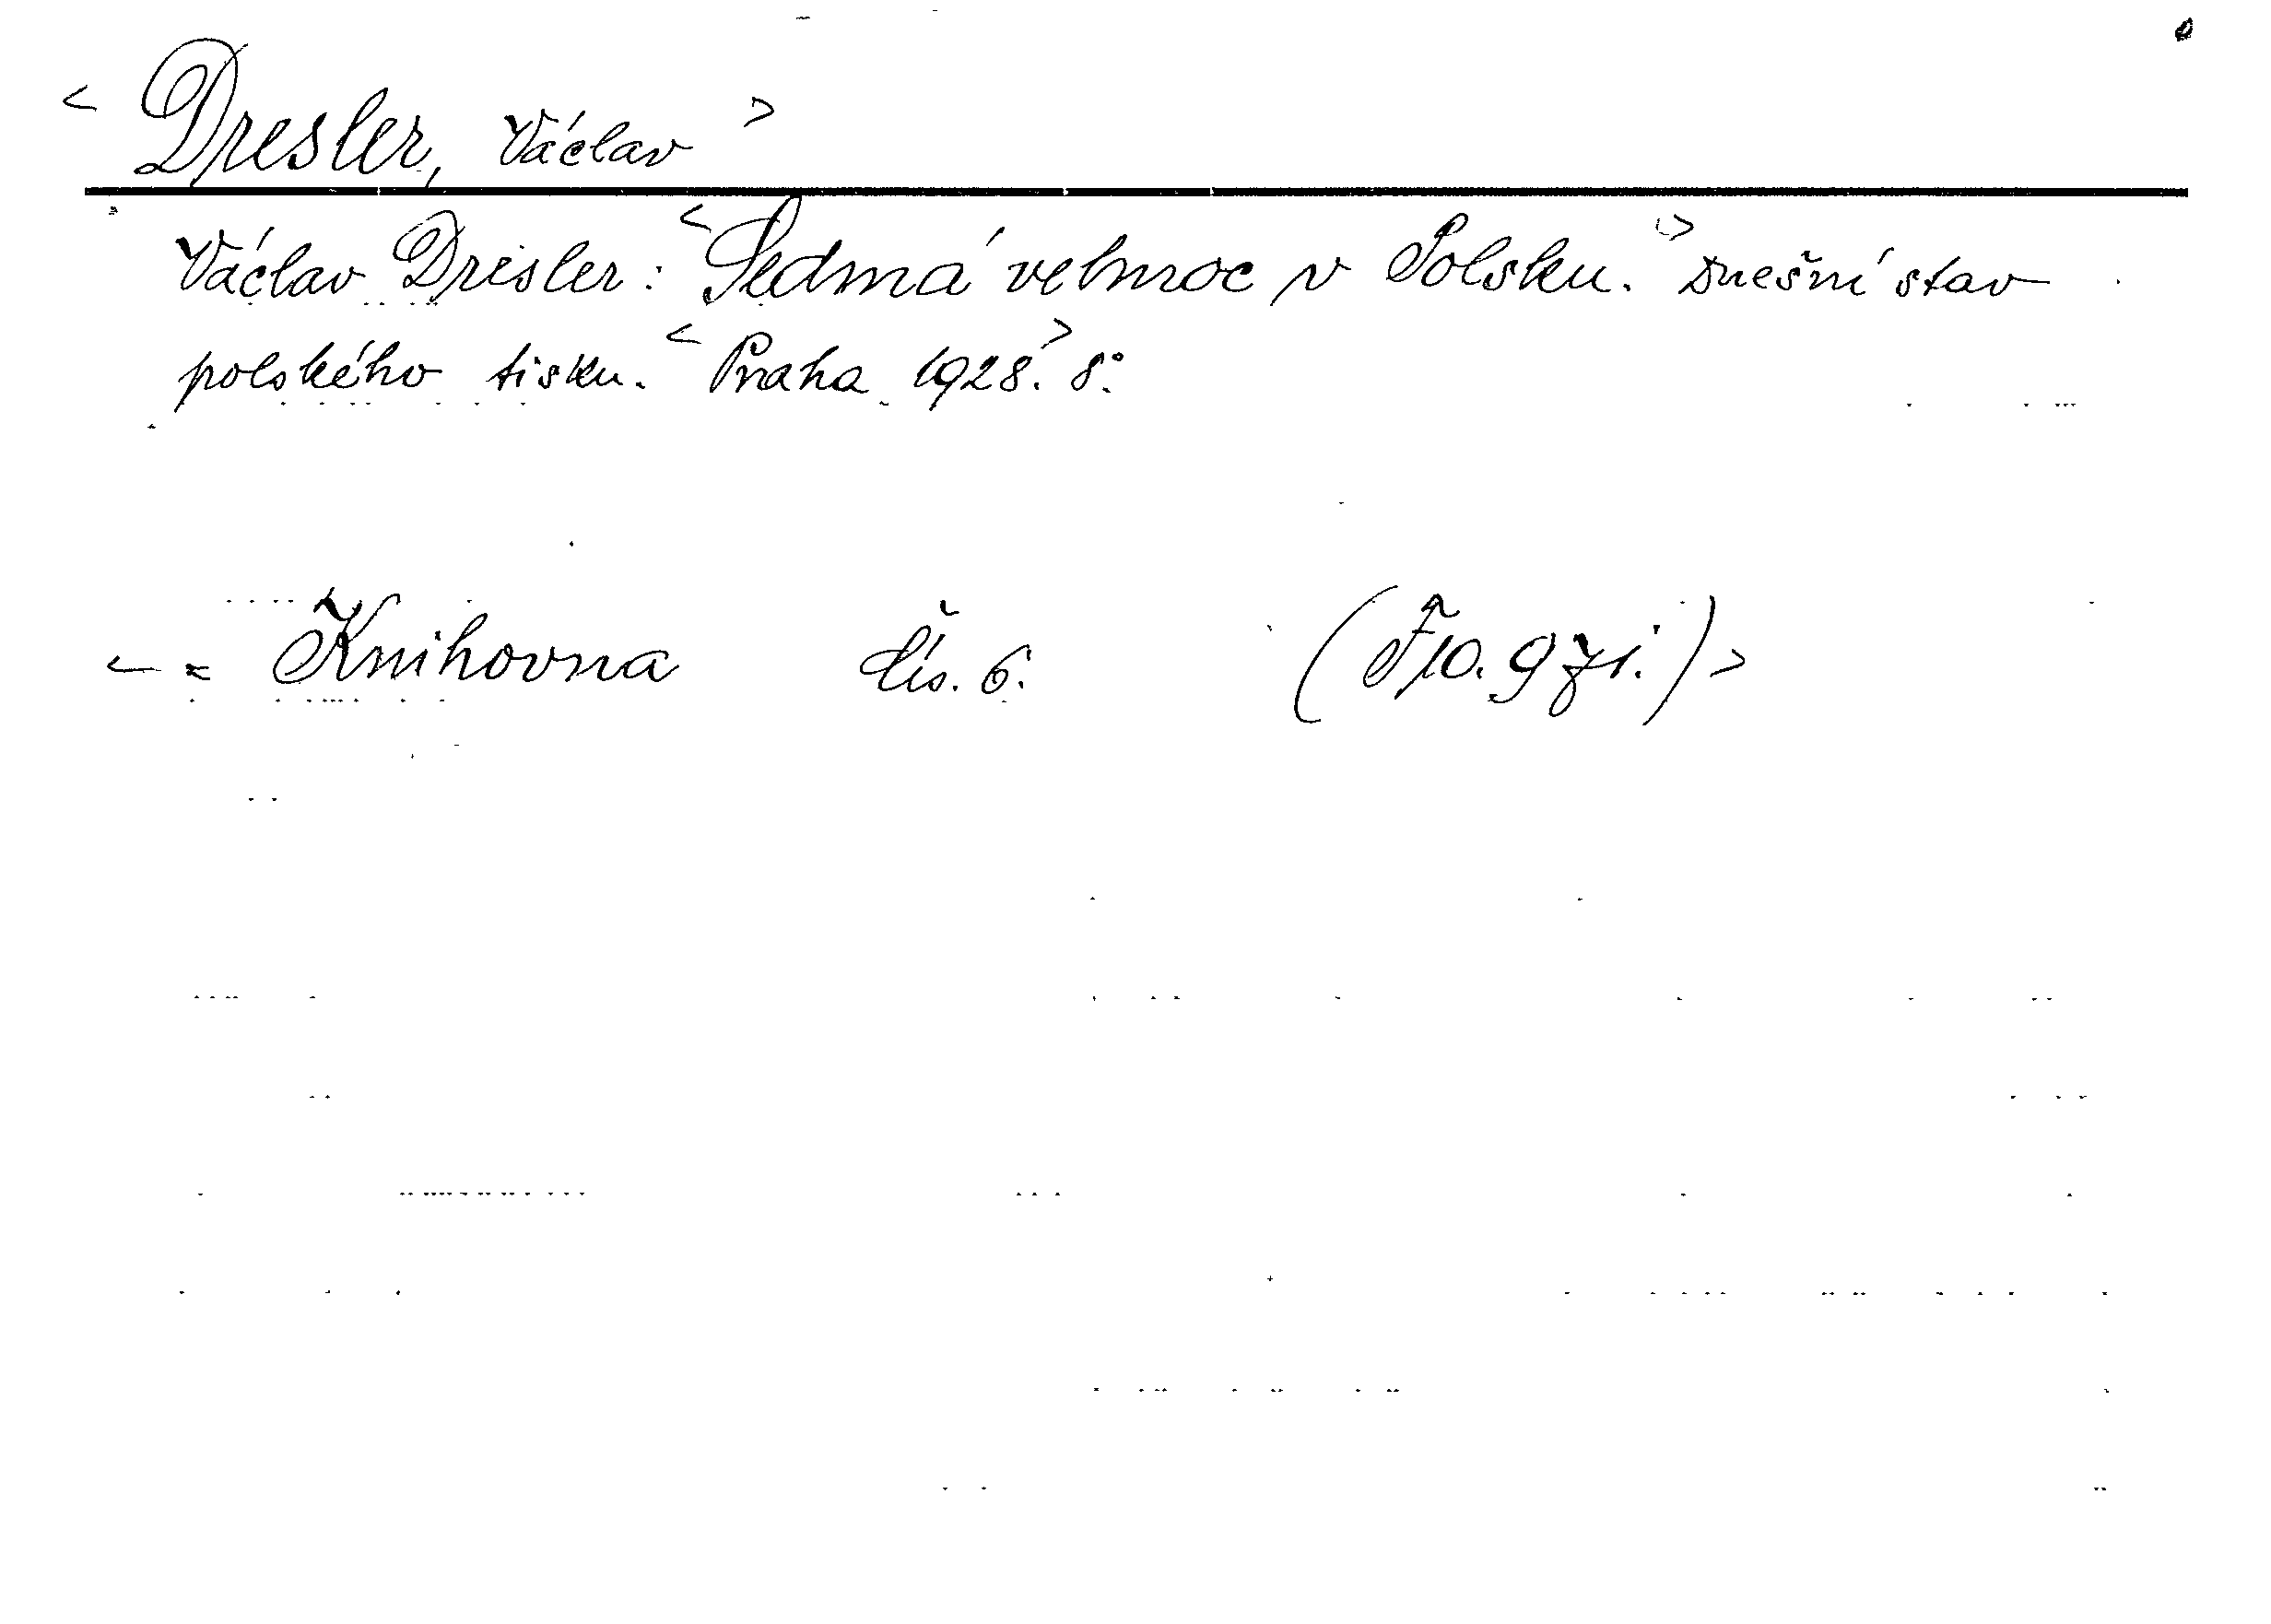 < Dresler, Václav >
Václav Dresler: <Sedmá velmoc v Polsku.> Dnešní stav
polského tisku. <Praha 1928.> 8°.
<= Knihovna čís. 6. >